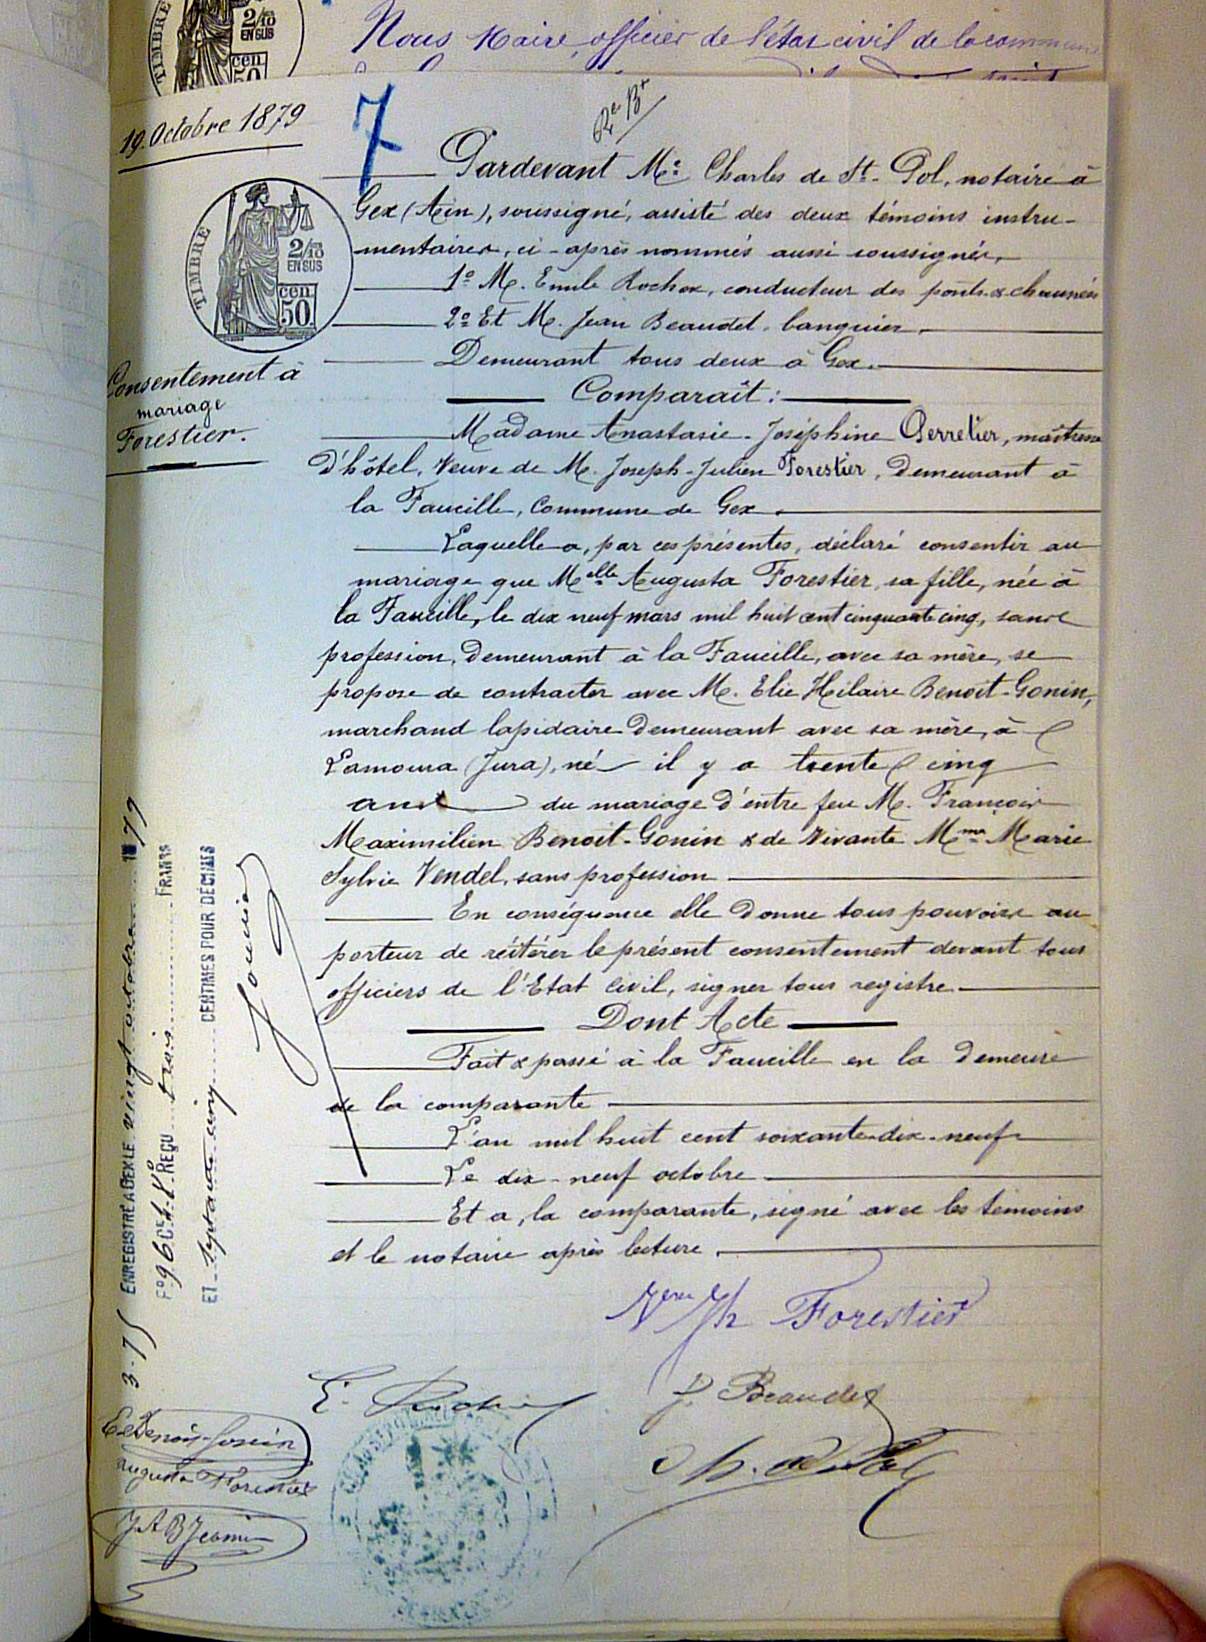 Nous Maire, officier de l'état civil de la commune
TIMBRE
2/10
EN SUS
cen.
50
19. Octobre 1879
7
TIMBRE
2/10
EN SUS
cen.
50.
Consentement à
mariage
Forestier.
Pardevant Me. Charles de St. Pol, notaire à
Gex (Ain), soussigné, assisté des deux témoins instru-
mentaires, ci-après nommés aussi soussignés,
1º M. Emile Rochex, conducteur des ponts & chaussées
2º Et M. Jean Beaudet, banquier,
Demeurant tous deux à Gex.
Comparaît :
Madame Anastasie-Joséphine Perretier, maîtresse
d'hôtel, Veuve de M. Joseph-Julien Forestier, Demeurant à
la Faucille, Commune de Gex.
Laquelle a, par ces présentes, déclaré consentir au
mariage que Melle Augusta Forestier, sa fille, née à
la Faucille, le dix neuf mars mil huit cent cinquante cinq, sans
profession, Demeurant à la Faucille, avec sa mère, se
propose de contracter avec M. Elie Hilaire Benoit-Gonin,
marchand lapidaire Demeurant avec sa mère, à
Lamoura (Jura), né il y a trente cinq
ans du mariage d'entre feu M. François
Maximilien Benoit-Gonin & de Vivante Mme Marie
Sylvie Vendel, sans profession
En conséquence elle Donne tous pouvoirs au
porteur de réitérer le présent consentement devant tous
officiers de l'Etat Civil, signer tous registre.
Dont Acte
Fait & passé à la Faucille en la demeure
de la comparante
L'an mil huit cent soixante-dix-neuf
Le dix-neuf octobre
Et a, la comparante, signé avec les témoins
et le notaire après lecture.
ENREGISTRÉ A GEX LE vingt octobre 1879
Fº 96 Cse 4 Vº REÇU trois FRANCS
ET septante cinq CENTIMES POUR DÉCIMES
3.75
Vve Jh Forestier
J. Beaudet
Ch. de St Pol
E. Benoit-Gonin
Augusta Forestier